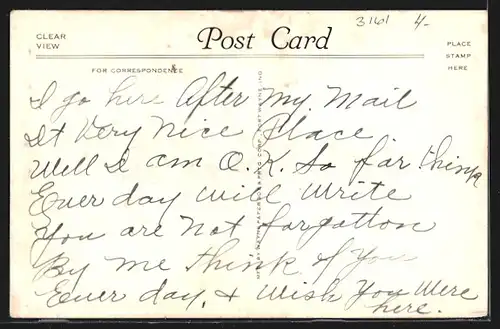 3161 4-
CLEAR VIEW
Post Card
PLACE STAMP HERE
FOR CORRESPONDENCE
I go here After My Mail
It Very Nice Place.
Well I am O.K. So far think
Ever day will write
You are not forgotton
By me think of You
Ever day, & wish You Were
here.